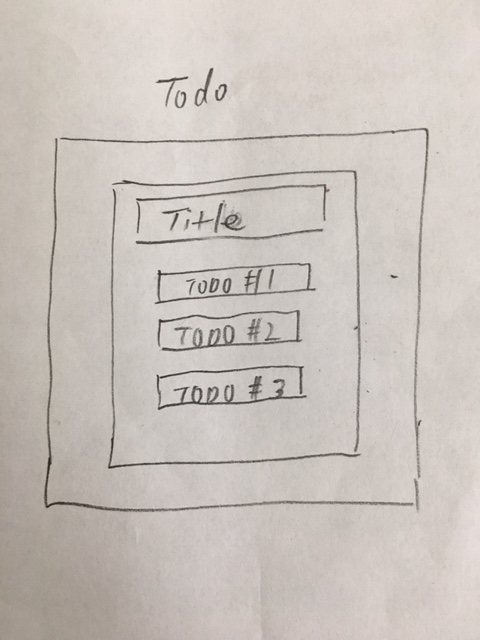 Todo
Title
TODO #1
TODO #2
TODO #3